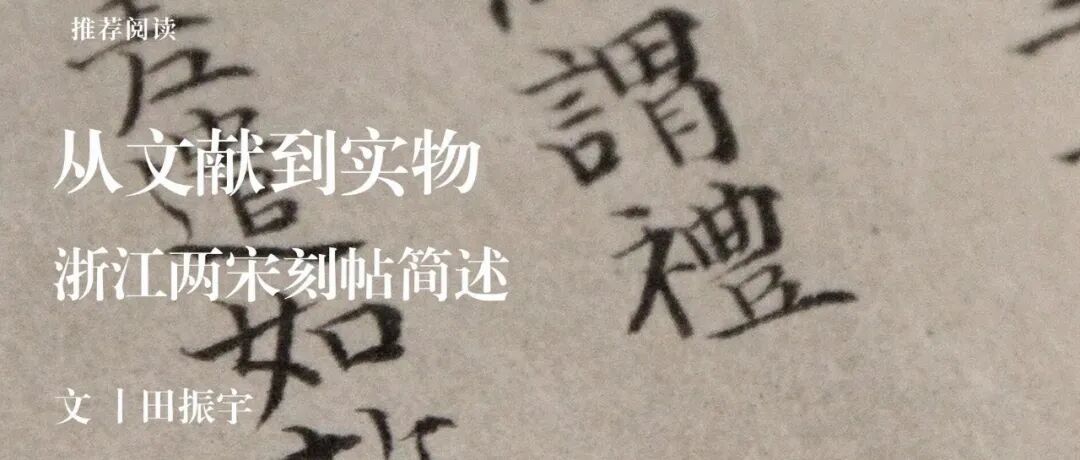 推荐阅读
从文献到实物
浙江两宋刻帖简述
文丨田振宇
謂禮
如